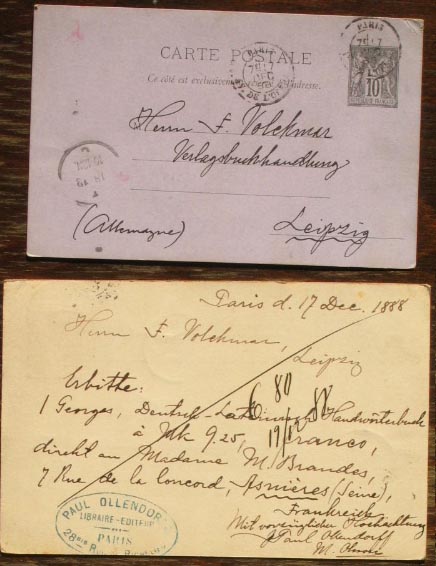 CARTE POSTALE
Ce côté est exclusivement réservé à l'adresse.
PARIS
PARIS
10
Herrn F. Volckmar
Verlagsbuchhandlung
Leipzig
(Allemagne)
Paris d. 17 Dec. 1888
Herrn F. Volckmar,
Leipzig
Erbitte:
80
1 Georges, Deutsch-Latein. Handwörterbuch
à Mk 9.25, franco,
19/12 88
direkt an Madame M. Brandes,
7 Rue de la Concord, Asnières (Seine),
Frankreich
Mit vorzüglicher Hochachtung
Paul Ollendorff
PAUL OLLENDORFF
LIBRAIRE-EDITEUR
PARIS
28bis Rue de Richelieu